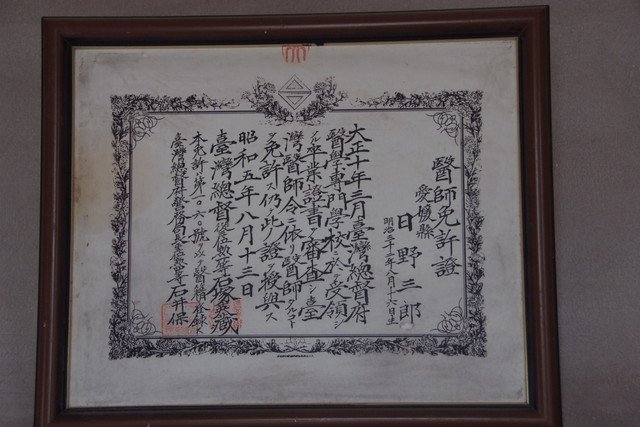 醫師免許證
愛媛縣
日野三郎
明治三十三年八月十六日生
大正十年三月臺灣總督府
醫學專門學校ニ於テ受領シ
タル卒業證書ヲ審査シ臺
灣醫師令ニ依リ醫師タルコト
ヲ免許ス仍テ此ノ證ヲ授與ス
昭和五年八月十三日
臺灣總督從三位勳一等石塚英藏
本免許第一〇六〇號ヲ以テ醫籍ニ登錄ス
臺灣總督府警務局長 石井保